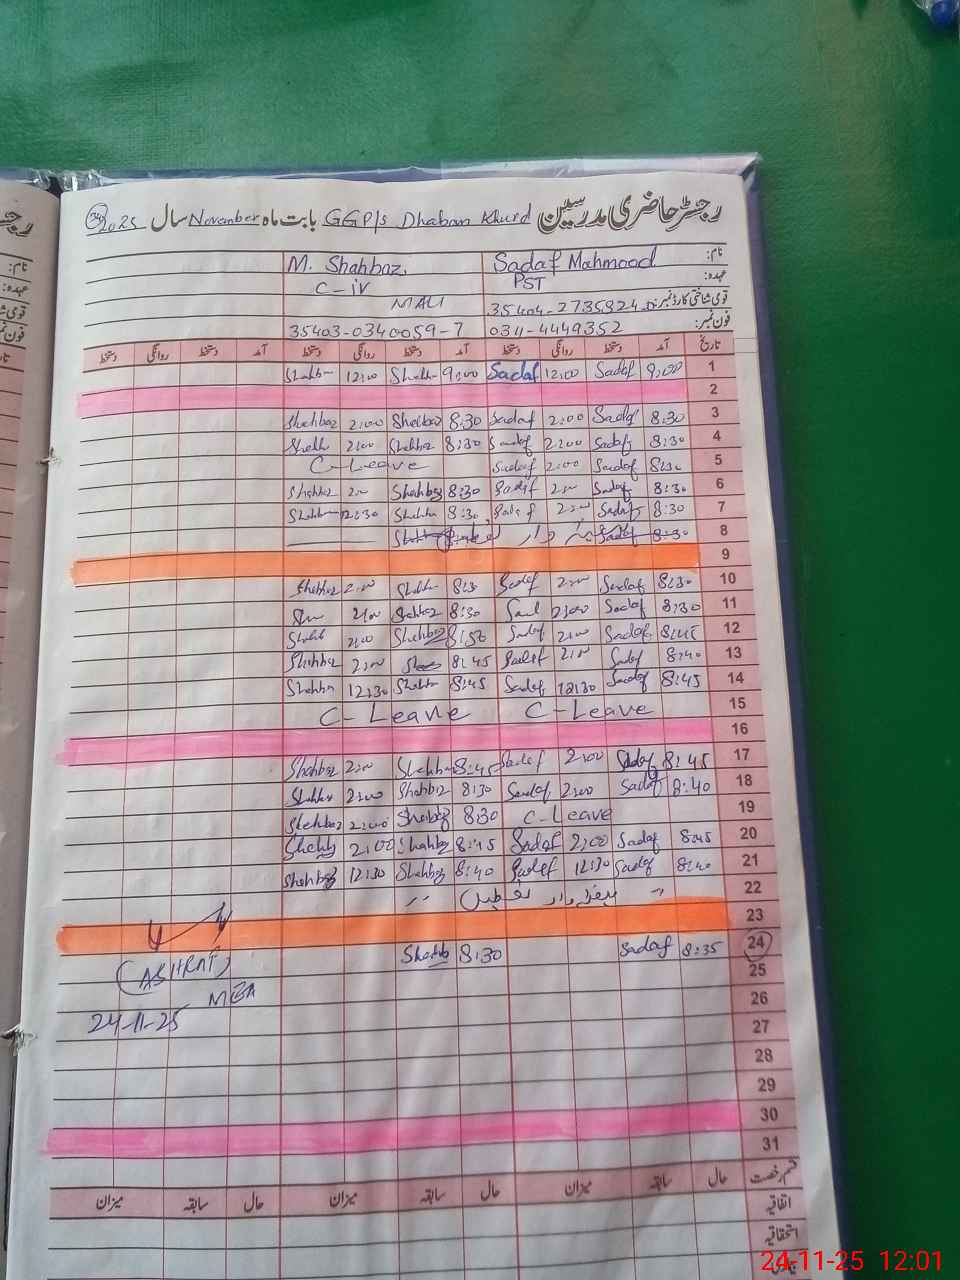 رجسٹر حاضری مدرسین GGP/S Dhaban Khurd بابت ماہ November سال 2025
نام: Sadaf Mahmood M. Shahbaz.
عہدہ: PST C-iv
قومی شناختی کارڈ نمبر: MALI
فون نمبر: 0311-4449352 35403-0340059-7
تاریخ آمد دستخط روانگی دستخط آمد دستخط روانگی دستخط آمد دستخط روانگی دستخط
1 9:00 Sadaf 12:00 Sadaf 9:00 12:00
2
3 8:30 Sadaf 2:00 Sadaf 8:30 Shahbaz 2:00 Shahbaz
4 8:30 Sadaf 2:00 Sadaf 8:30 Shahbaz 2:00
5 8:30 Sadaf 2:00 Sadaf C-Leave
6 8:30 Sadaf Sadaf 8:30 Shahbaz Shahbaz
7 8:30 Sadaf 2:00 Sadaf 8:30 12:30
8 8:30 Sadaf
9
10 8:30 Sadaf Sadaf 8:30 Shahbaz
11 8:30 Sadaf 2:00 8:30 Shahbaz 2:00
12 8:45 Sadaf 2:00 Sadaf 8:50 Shahbaz 2:00
13 8:40 Sadaf Sadaf 8:45 Shahbaz
14 8:45 Sadaf 12:30 Sadaf 8:45 12:30
15 C-Leave C-Leave
16
17 8:45 Sadaf 2:00 Sadaf 8:45 Shahbaz
18 8:40 Sadaf 2:00 Sadaf 8:30 Shahbaz 2:00
19 C-Leave 8:30 Shahbaz 2:00 Shahbaz
20 8:45 Sadaf 2:00 Sadaf 8:45 Shahbaz 2:00
21 8:40 Sadaf 12:30 Sadaf 8:40 Shahbaz 12:30 Shahbaz
22 ہفتہ وار تعطیل
23
24 8:35 Sadaf 8:30
25
(ASHRAF)
26
MEA
27
24-11-25
28
29
30
31
قسم رخصت حال سابقہ میزان حال سابقہ میزان حال سابقہ میزان
اتفاقیہ
استحقاقیہ
24-11-25 12:01